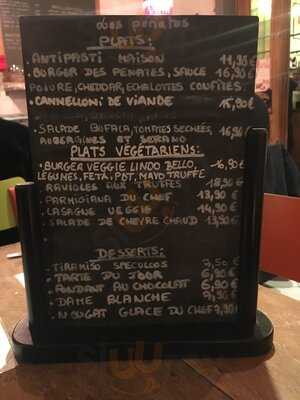 Los penates
PLATS:
. ANTIPASTI MAISON 11,95 €
. BURGER DES PENATES, SAUCE 16,95 €
POIVRE, CHEDDAR, ECHALOTTES CONFITES
. CANNELLONI DE VIANDE 15,90 €
. SALADE BUFALA, TOMATES SECHÉES, 16,90
AUBERGINES ET SERRANO
PLATS VEGETARIENS:
. BURGER VEGGIE LINDO BELLO, 16,90 €
LÉGUMES, FETA, POT, MAYO TRUFFE
RAVIOLES AUX TRUFFES 18,90 €
. PARMIGIANA DU CHEF 13,90 €
. LASAGNE VEGGIE 14,90 €
. SALADE DE CHEVRE CHAUD 13,90 €
DESSERTS:
. TIRAMISU SPECULOOS 7,50 €
. TARTE DU JOUR 6,90 €
. FONDANT AU CHOCOLAT 6,90 €
. DAME BLANCHE €
. NOUGAT GLACÉ DU CHEF 7,90 €